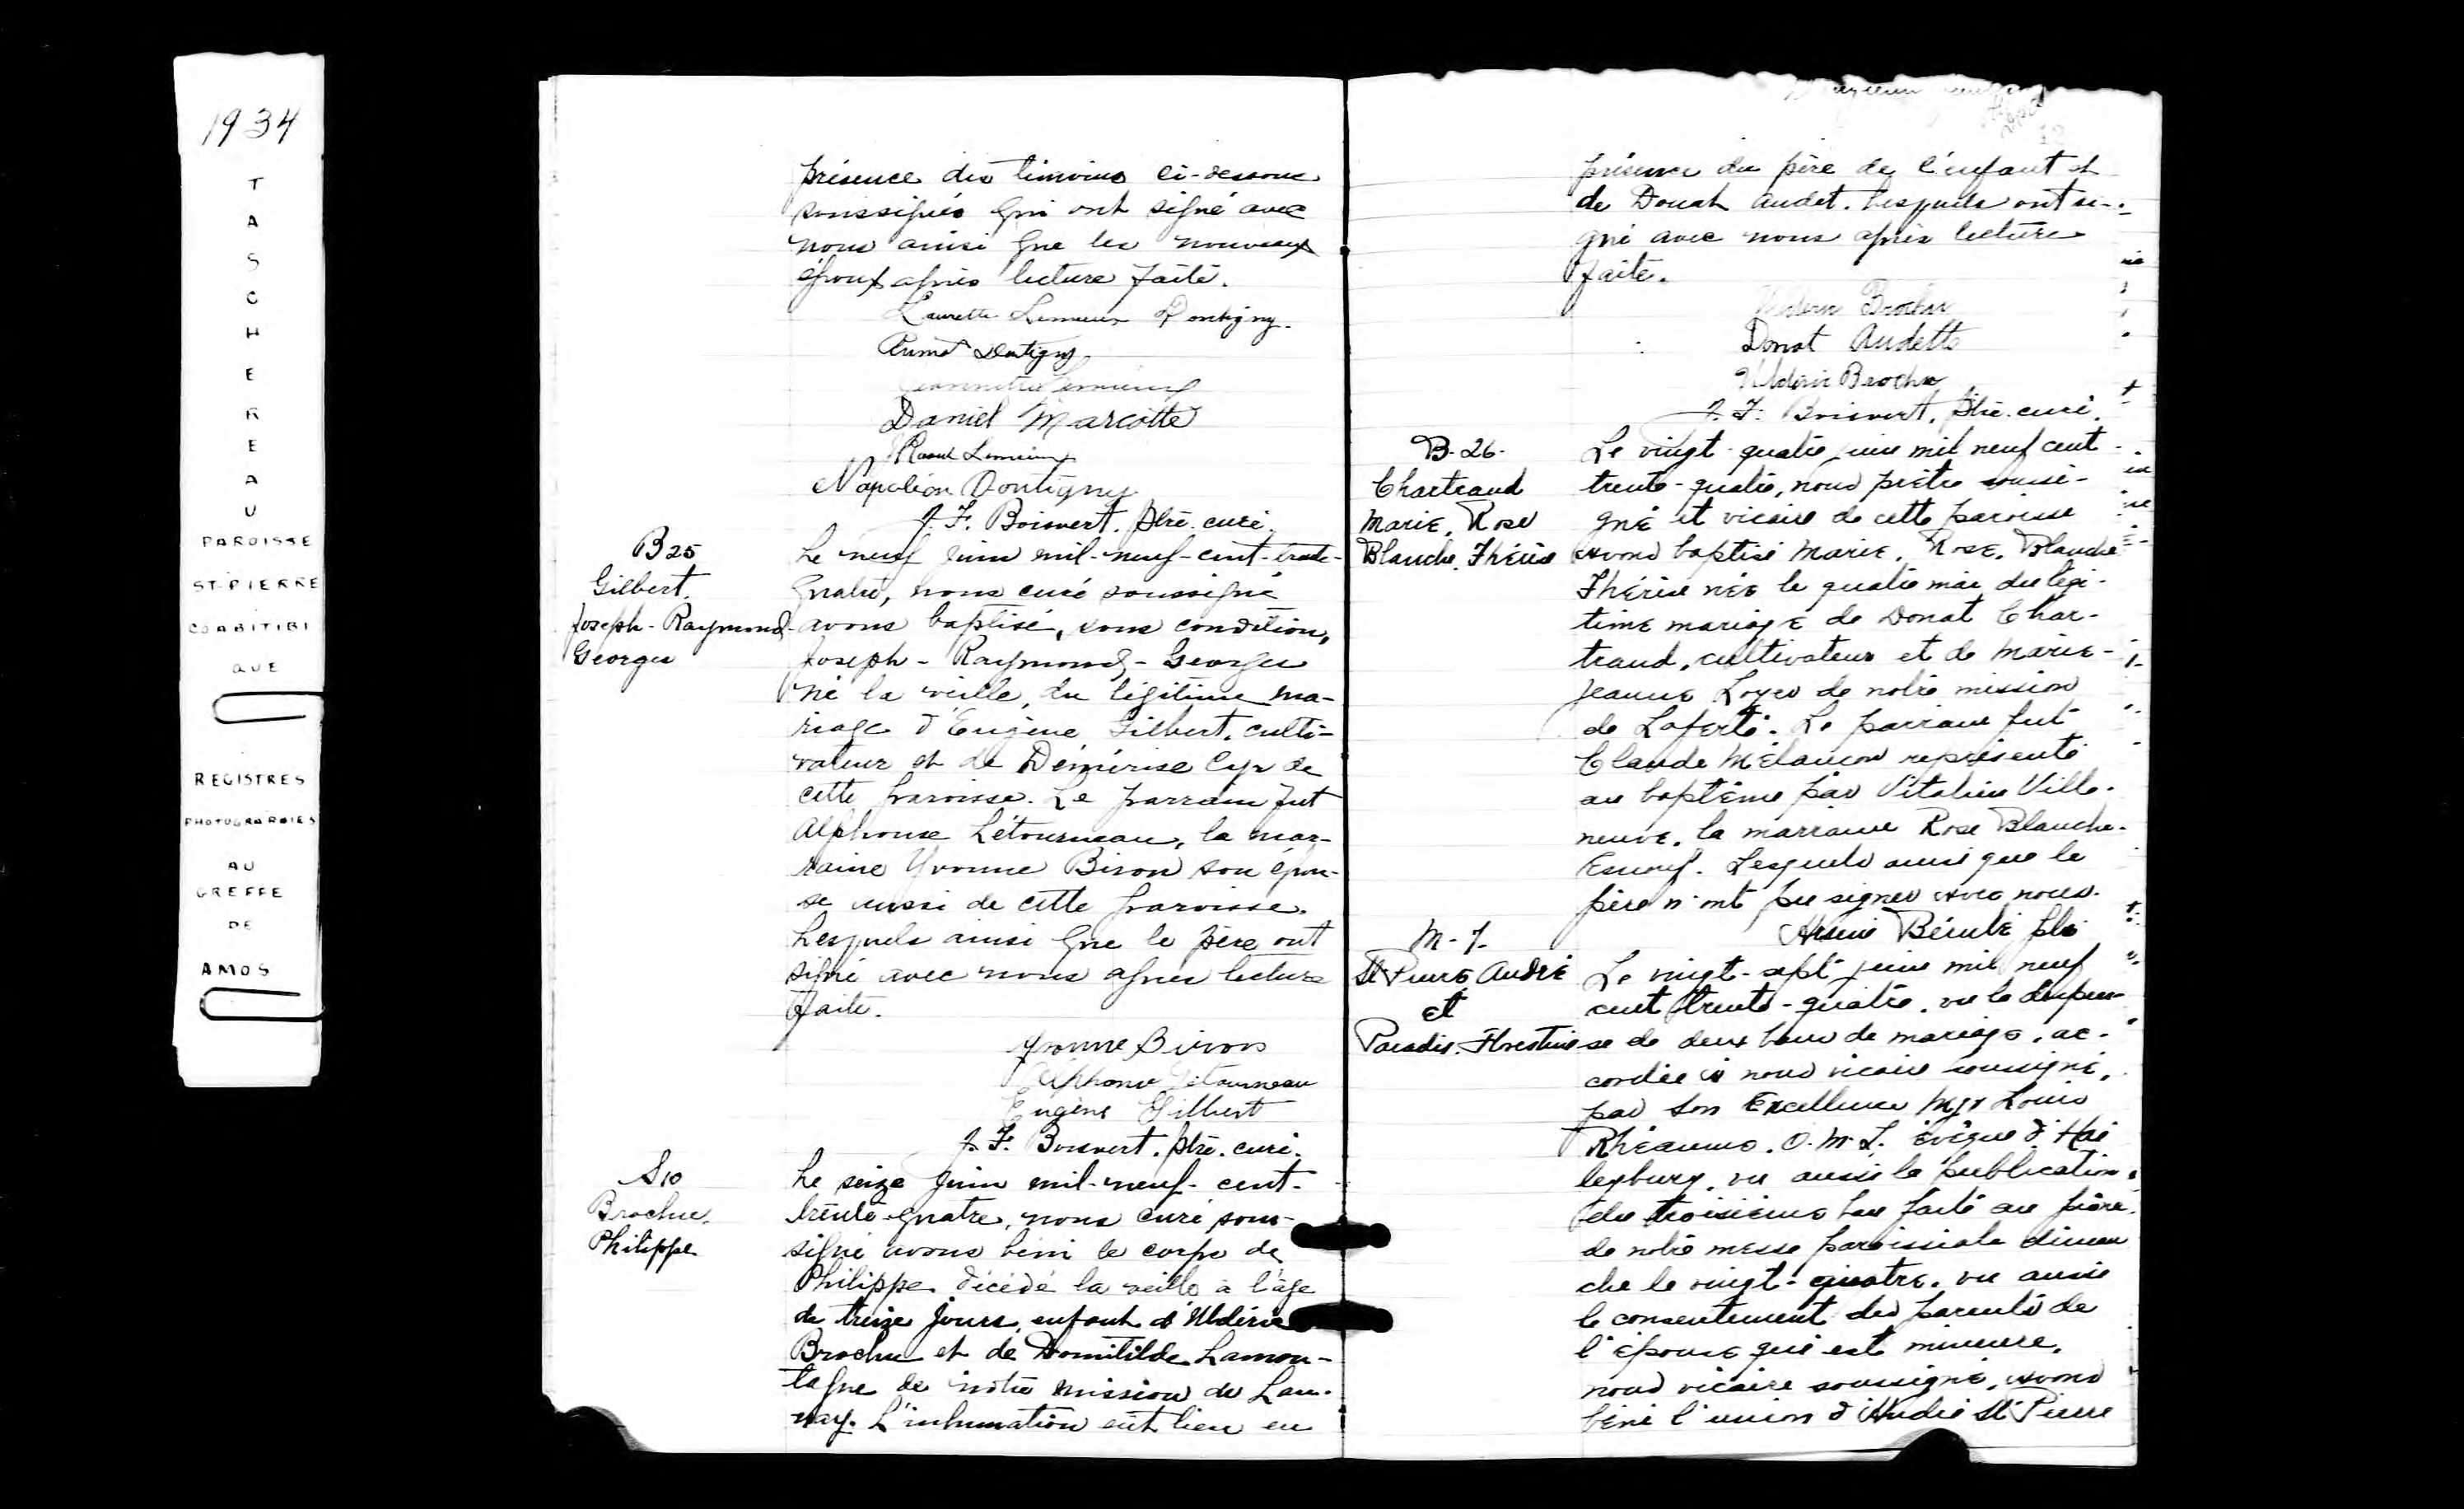 1934
TASCHEREAU
PAROISSE
ST-PIERRE
CO ABITIBI
QUE
REGISTRES
PHOTOGRAPHIES
AU
GREFFE
DE
AMOS
présence des témoins ci-dessous
soussignés qui ont signé avec
nous ainsi que les nouveaux
époux après lecture faite.
Laurette Lemieux Dontigny.
Dontigny
Jeannette Lemieux
Daniel Marcotte
Raoul Lemieux
Napoléon Dontigny
J. F. Boisvert, ptre. curé.
B25
Gilbert.
Joseph-Raymond-
Georges
Le neuf juin mil-neuf-cent-trente-
quatre, nous curé soussigné
avons baptisé, sous condition,
Joseph-Raymond-Georges
né la veille, du légitime ma-
riage d'Eugène Gilbert, culti-
vateur et de Démérise Cyr de
cette paroisse. Le parrain fut
Alphonse Létourneau, la mar-
raine Yvonne Biron son épou-
se aussi de cette paroisse.
Lesquels ainsi que le père ont
signé avec nous après lecture
faite.
Yvonne Biron
Alphonse Letourneau
Eugène Gilbert
J. F. Boisvert. ptre. curé.
S10
Brochu,
Philippe
Le seize juin mil-neuf-cent-
trente-quatre, nous curé sous-
signé avons béni le corps de
Philippe décédé la veille à l'âge
de treize jours, enfant d'Uldéric
Brochu et de Domitilde Lamon-
tagne de notre mission de Lau-
nay. L'inhumation eut lieu en
présence du père de l'enfant et
de Donat Audet. Lesquels ont si-
gné avec nous après lecture
faite.
Brochu
Donat Audette
Uldéric Brochu
J. F. Boisvert, ptre. curé.
B-26-
Chartrand
Marie, Rose
Blanche, Thérèse
Le vingt-quatre juin mil neuf cent
trente-quatre, nous prêtre soussi-
gné et vicaire de cette paroisse
avons baptisé Marie, Rose, Blanche
Thérèse née le quatre mai du légi-
time mariage de Donat Char-
trand, cultivateur et de Marie-
Jeanne Loyer de notre mission
de Laferté. Le parrain fut
Claude Mélancon représenté
au baptême par Vitalien Ville-
neuve, la marraine Rose Blanche
Lesquels ainsi que le
père n'ont pu signer avec nous.
Bérubé ptre
M-7-
St Pierre, André
et
Paradis, Florestine
Le vingt-sept juin mil neuf
cent trente-quatre, vu la dispen-
se de deux bans de mariage, ac-
cordée à nous vicaire soussigné,
par Son Excellence Mgr Louis
Rhéaume, O.M.I. évêque d'Hai
leybury, vu aussi la publication
du troisième ban faite au prône
de notre messe paroissiale diman
che le vingt-quatre, vu aussi
le consentement des parents de
l'épouse qui est mineure,
nous vicaire soussigné, avons
béni l'union d'André St Pierre